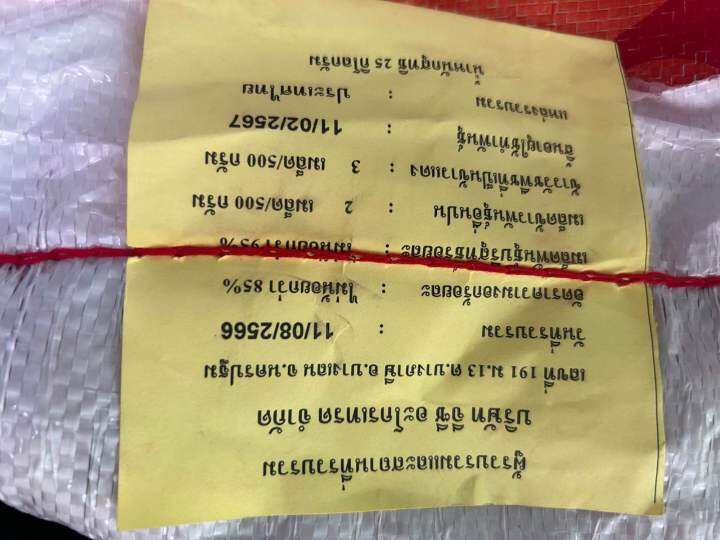 ผู้รวบรวมและสถานที่รวบรวม
บริษัท อีซี่ อะโกรเทรด จำกัด
เลขที่ 191 ม.13 ต.บางภาษี อ.บางเลน จ.นครปฐม
วันที่รวบรวม : 11/08/2566
อัตราความงอกร้อยละ : ไม่น้อยกว่า 85%
เมล็ดพันธุ์บริสุทธิ์ร้อยละ : ไม่น้อยกว่า 95%
เมล็ดข้าวพันธุ์อื่นปน : 2 เมล็ด/500 กรัม
ข้าววัชพืชที่เป็นข้าวแดง : 3 เมล็ด/500 กรัม
สิ้นอายุใช้ทำพันธุ์ : 11/02/2567
แหล่งรวบรวม : ประเทศไทย
น้ำหนักสุทธิ 25 กิโลกรัม